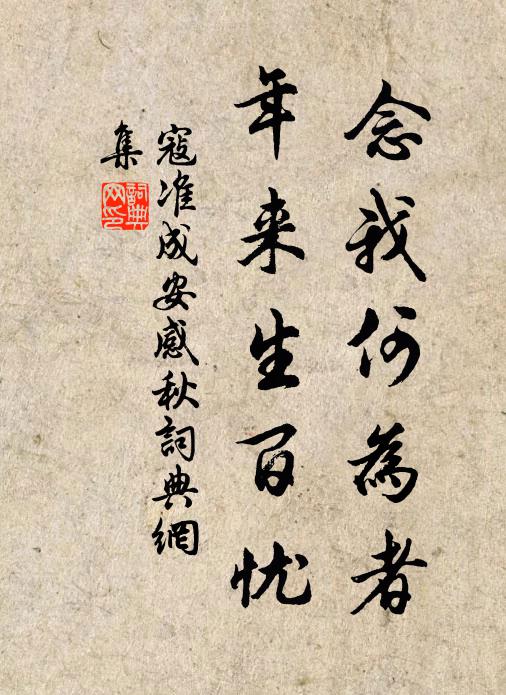 念我何為者
年来生百忧
寇准成安感秋詞典網
集
詞典
网印